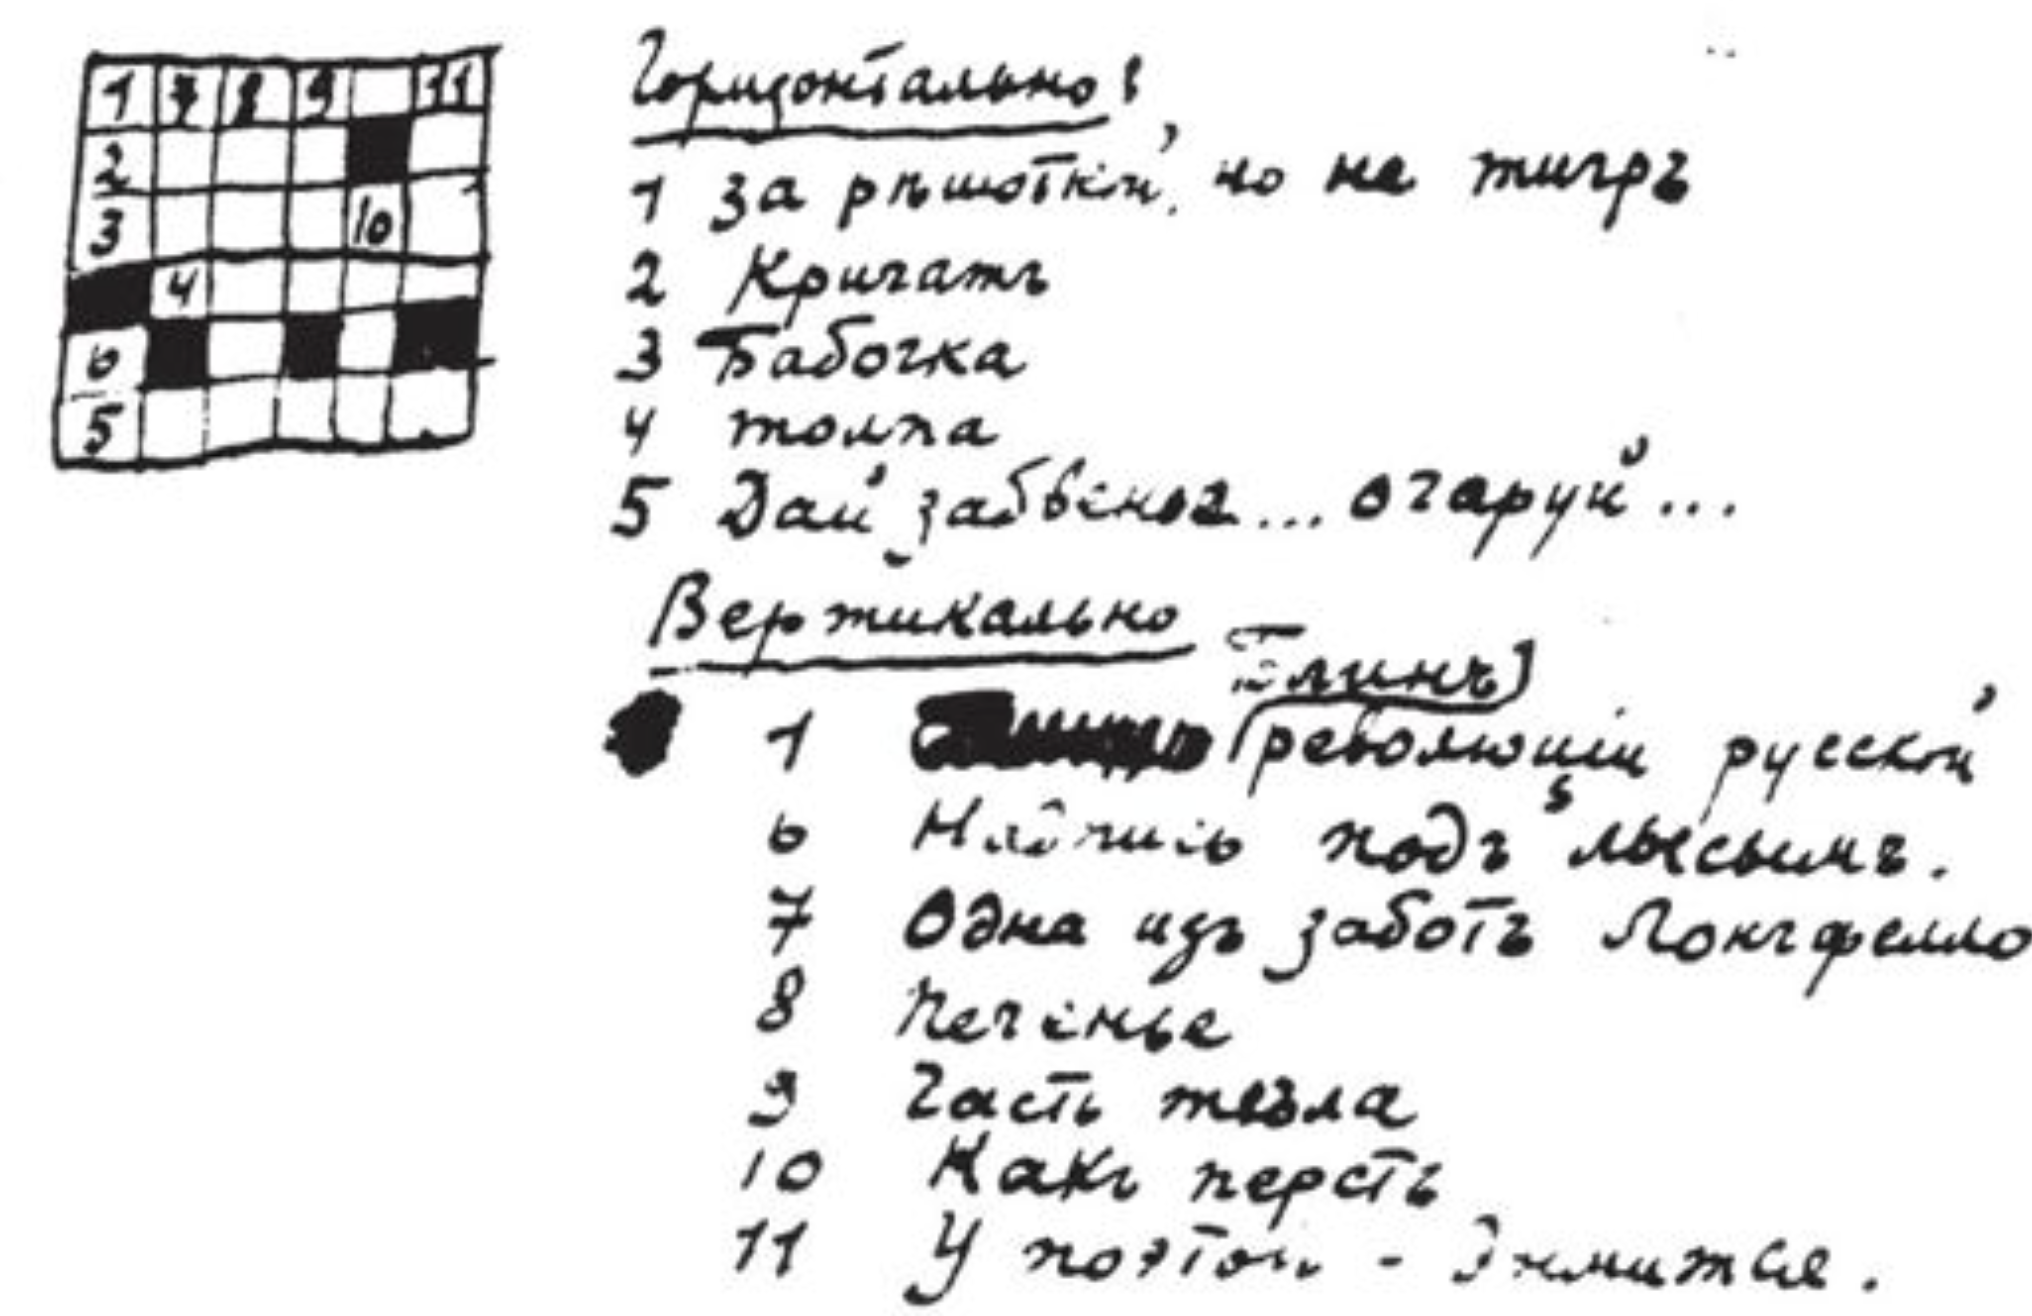 1 7 8 9 11
2
3 10
4
6
5
Горизонтально:
1 за рѣшоткой, но не тигръ
2 Кричатъ
3 Бабочка
4 толпа
5 Дай забвенье... очаруй...
Вертикально
Блинъ)
1 (революціи русской
6 Надпись подъ лысымъ.
7 Одна изъ заботъ Лонгфелло
8 Печенье
9 Часть тѣла
10 Какъ персть
11 У поэтовъ - дымится.